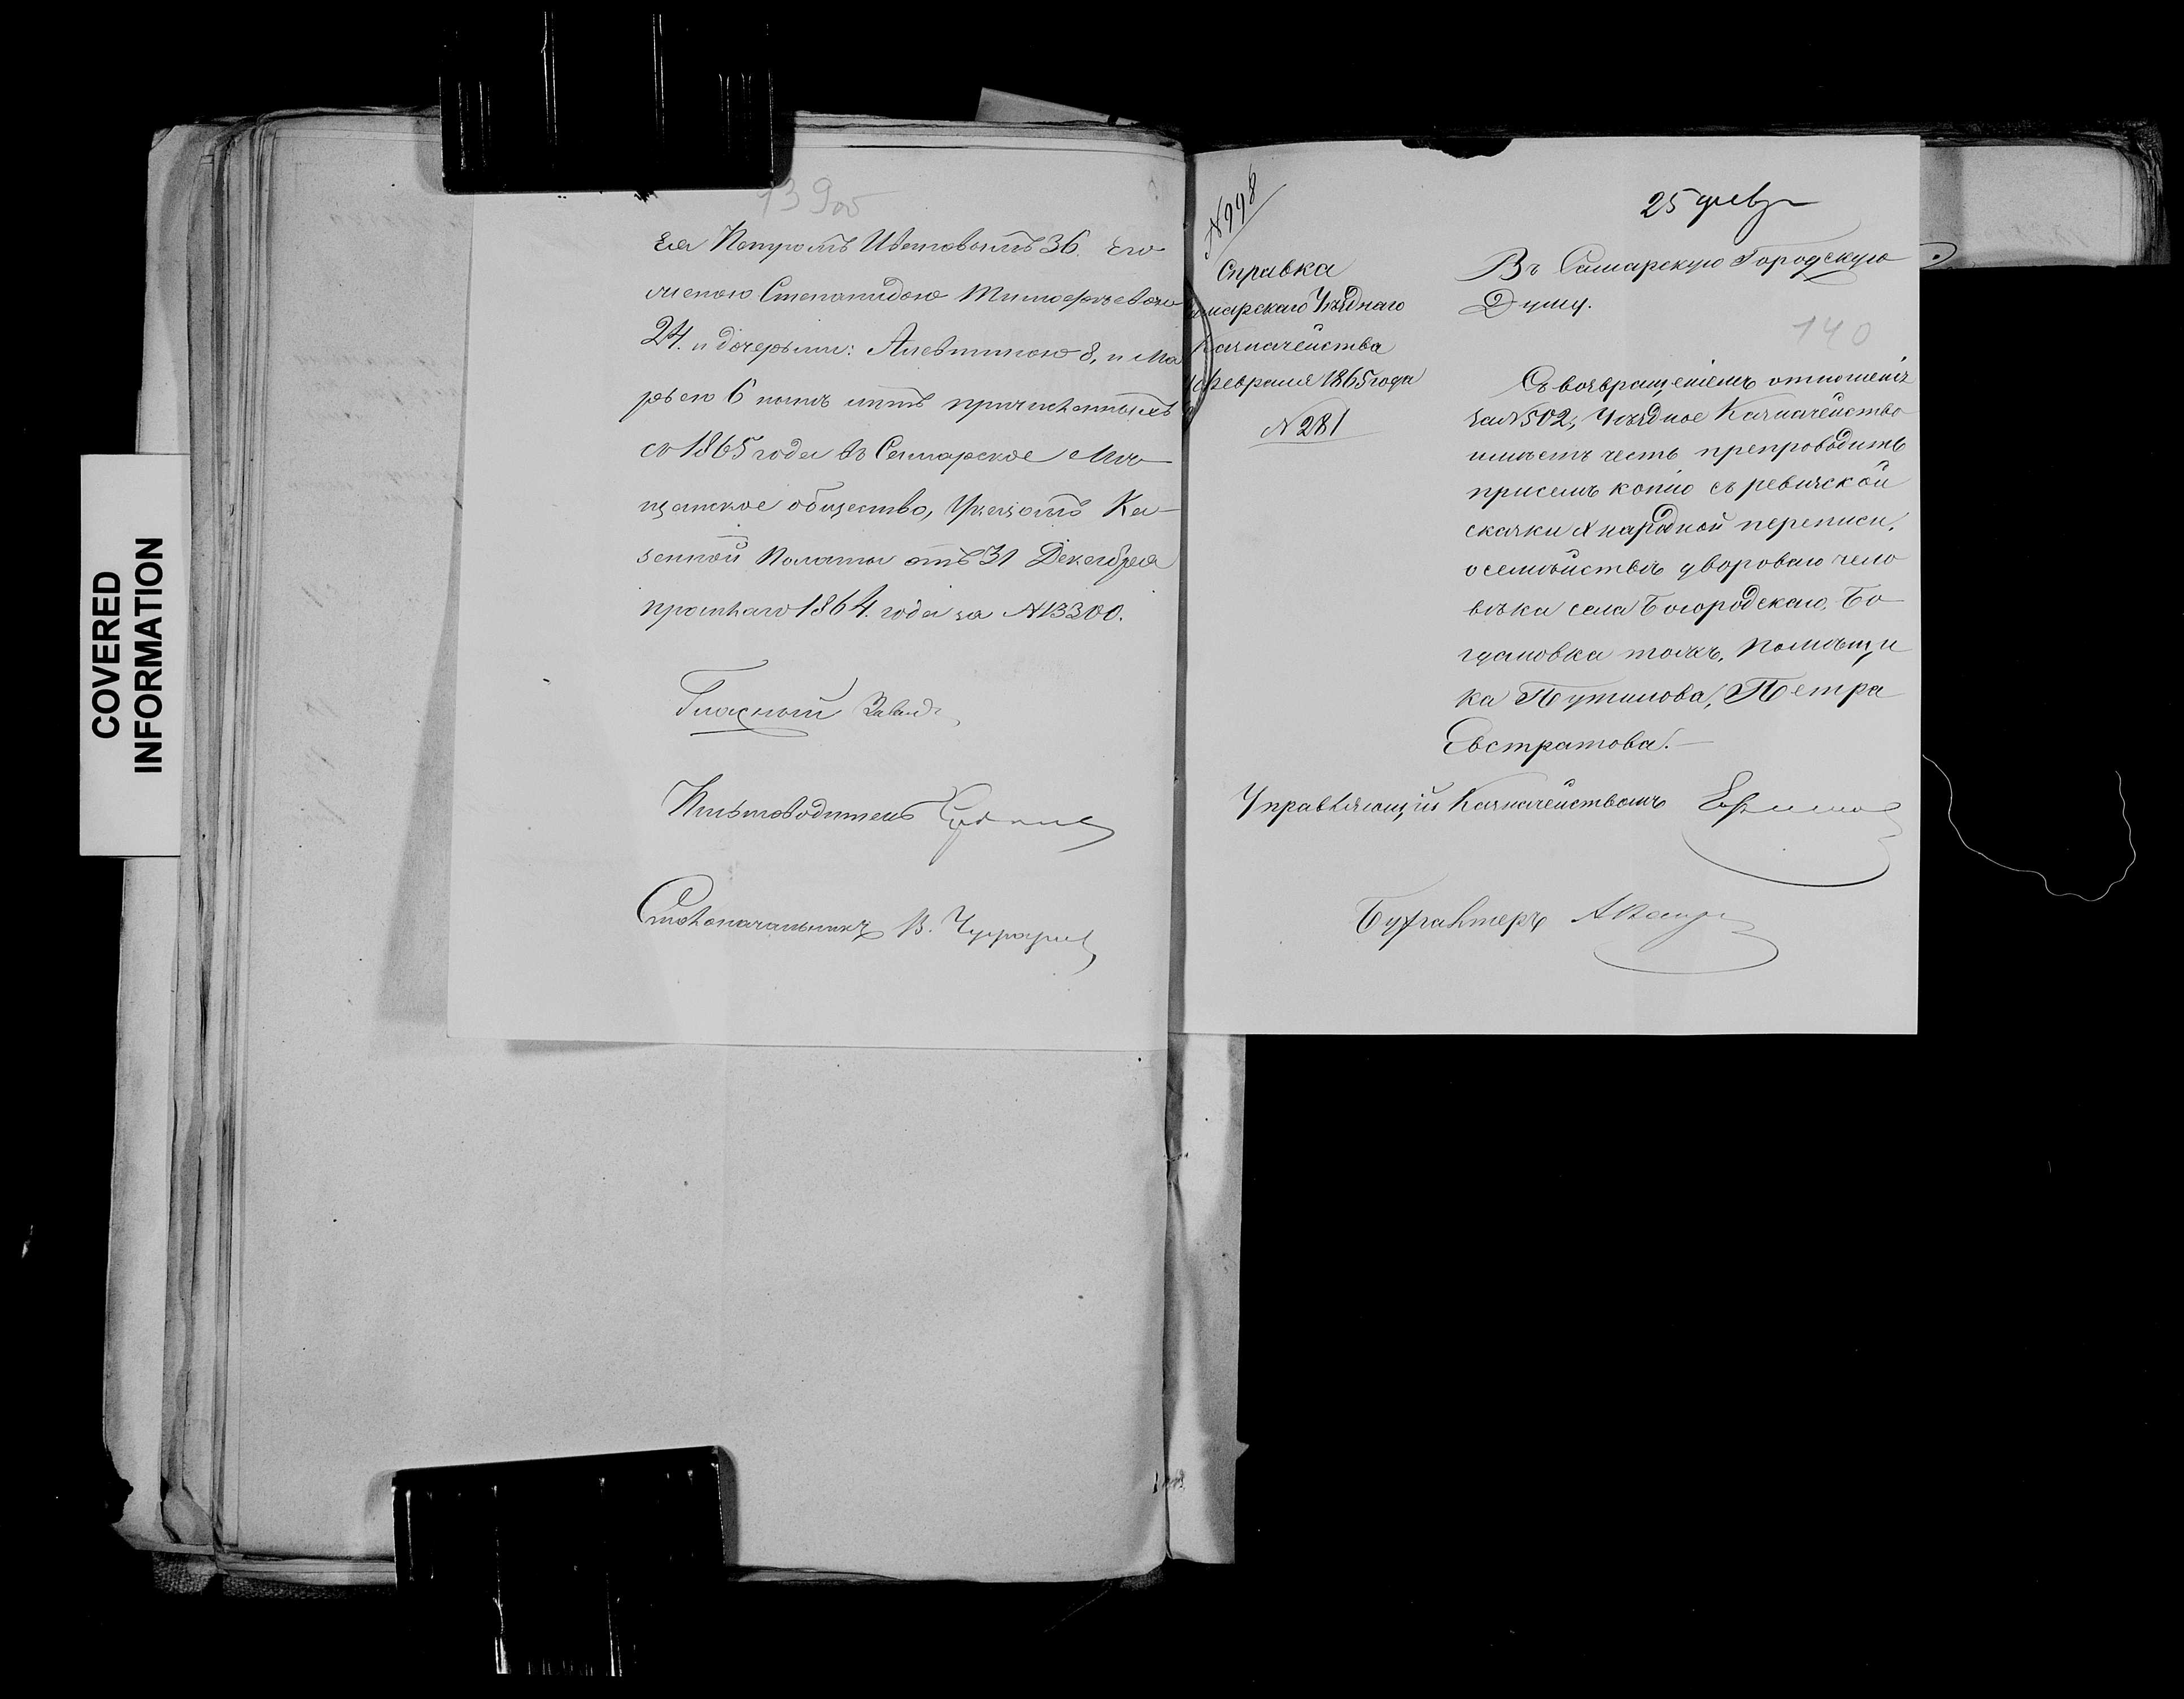 139об
ея Петромъ Ивановымъ 36. Его
женою Степанидою Тимофѣевою
24. и дочерьми: Алевтиною 8, и Ма
рьею 6 лѣтъ причисленныхъ
съ 1865 года въ Самарское Мѣ-
щанское общество, Указомъ Ка-
зенной Палаты отъ 31 Декабря
прошлаго 1864. года за №13300.
Гласный
Письмоводитель
Столоначальникъ В.
COVERED
INFORMATION
№998
Справка
амарскаго Уѣзднаго
Казначейства
Февраля 1865 года
№281
25 февр
Въ Самарскую Городскую
Думу.
140
Съ возвращеніемъ отношенія
за №502, Уѣздное Казначейство
имѣетъ честь препроводить
присемъ копію съ ревизской
сказки X народной переписи,
о семѣйствѣ двороваго чело
вѣка села Богородскаго, Бо
гдановка тожъ, помѣщи
ка Путилова, Петра
Евстратова.—
Управляющій Казначействомъ
Бухгалтеръ